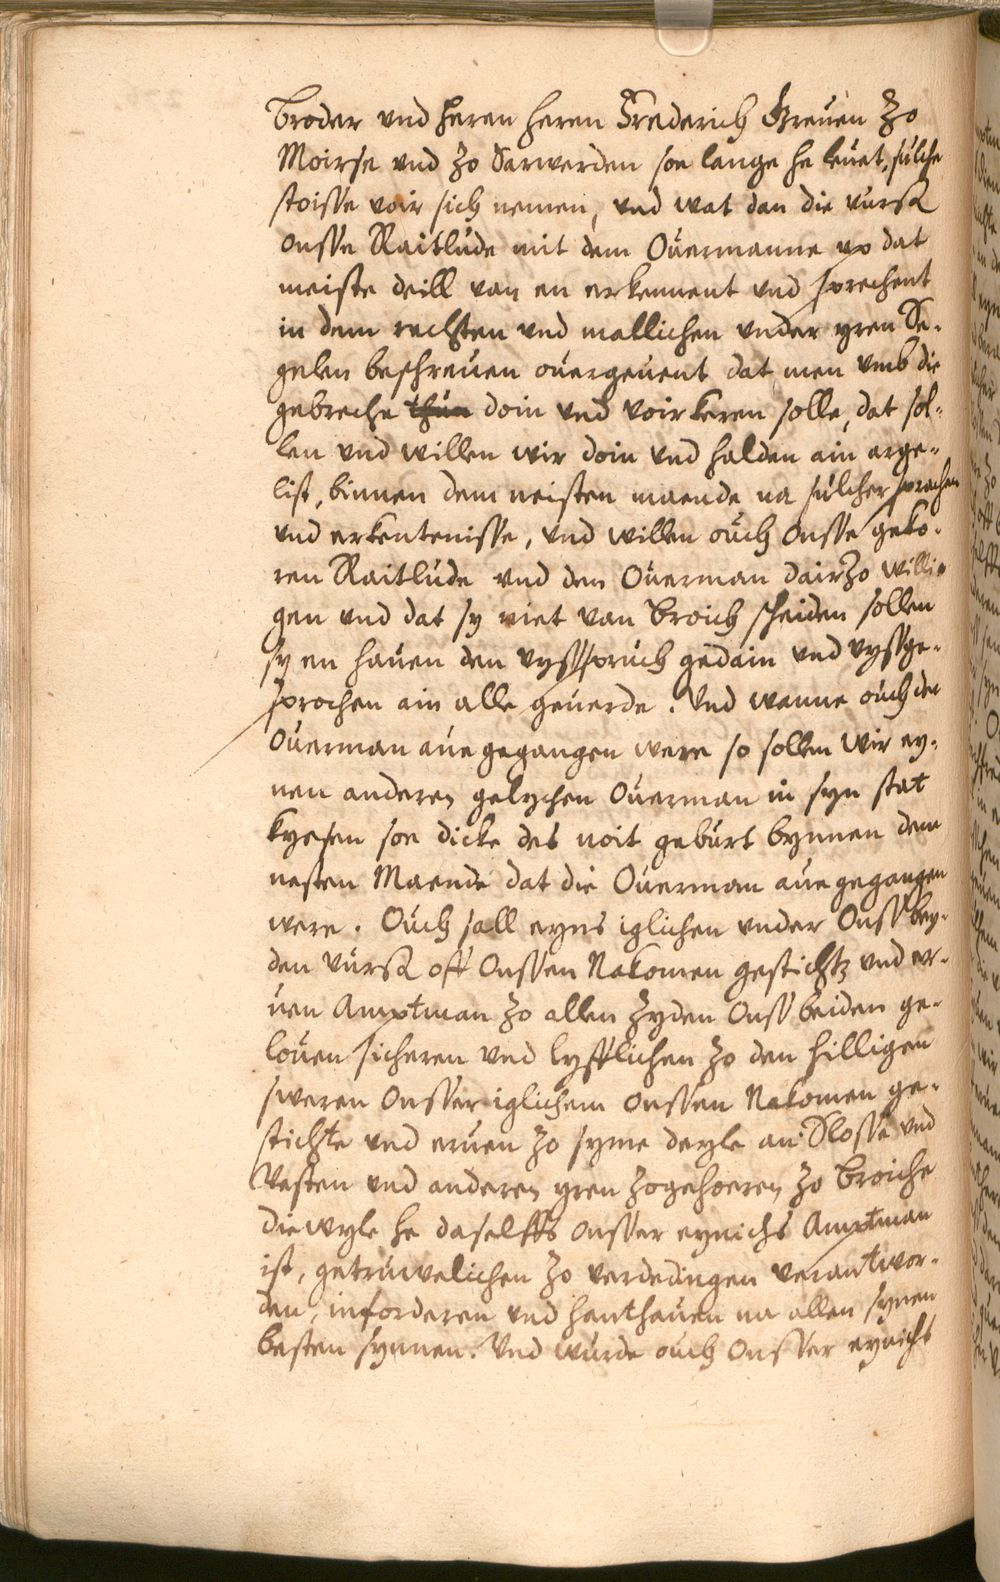 Broder und heren heren Frederich Greuen Zo
Moirse und Zo Sarwerden soe lange he leuet, sulche
stoisse voir sich nemen, und wat dan die vursß
Onsse Raitlude mit dem Ouermanne up dat
meiste deill van en erkennent und sprechent
in dem rechten und mallichen under yren Se-
gelen beschreuen ouergeuent dat men umb die
gebreche thun doin und voirkeren solle, dat sol-
len und willen wir doin und halden ain arge-
list, binnen dem neisten maende na sulcher sprachen
und erkentenisse, und willen ouch Onsse geko-
ren Raitlude und den Ouerman dairZo willi-
gen und dat sy niet van Broich scheiden sollen
sy en hauen den vyssspruch gedain und vyssge-
sprochen ain alle geuerde. Und wanne ouch der
Ouerman aue gegangen were so sollen wir ey-
nen anderen gelychen Ouerman in syn stat
kyesen soe dicke des noit geburt bynnen dem
nesten Maende dat die Ouerman aue gegangen
were. Ouch sall eyns iglichen under Onss bey-
den vursß off Onssen Nakomen gestichtz und er-
uen Amptman Zo allen Zyden Onss beiden ge-
louen sicheren und lyfflichen Zo den hilligen
sweren Onsser iglichem onssen Nakomen ge-
stichte und eruen Zo syme deyle an Slosse und
Vesten und anderen yren Zogehoeren Zo Broiche
die wyle he daselffs onsser eynichs Amptman
ist, getruwelichen Zo verdedingen verantwor-
den, inforderen und hanthauen na allen synen
besten synnen. Und wurde ouch Onsser eynichs